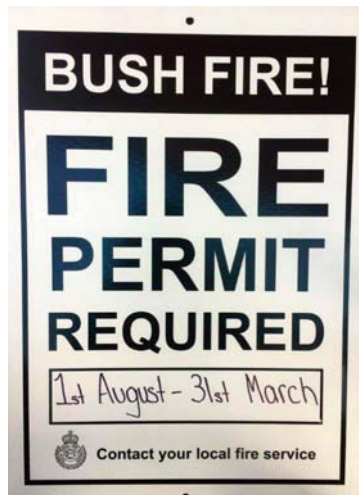 BUSH FIRE!
FIRE
PERMIT
REQUIRED
1st August - 31st March
Contact your local fire service